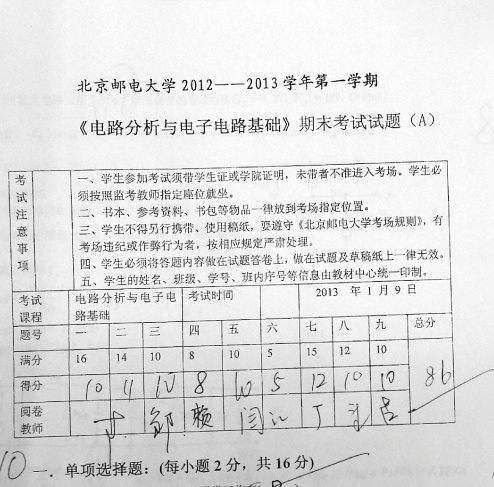 北京邮电大学2012——2013学年第一学期
《电路分析与电子电路基础》期末考试试题（A）
考试注意事项
一、学生参加考试须带学生证或学院证明，未带者不准进入考场。学生必
须按照监考教师指定座位就坐。
二、书本、参考资料、书包等物品一律放到考场指定位置。
三、学生不得另行携带、使用稿纸，要遵守《北京邮电大学考场规则》，有
考场违纪或作弊行为者，按相应规定严肃处理。
四、学生必须将答题内容做在试题答卷上，做在试题及草稿纸上一律无效。
五、学生的姓名、班级、学号、班内序号等信息由教材中心统一印制。
考试 电路分析与电子电 考试时间 2013 年 1 月 9 日
课程 路基础
题号 一 二 三 四 五 六 七 八 九 总分
满分 16 14 10 8 10 5 15 12 10
得分 10 11 10 8 10 5 12 10 10 86
阅卷 邹 赖 闫 江 丁
教师
10 一．单项选择题：(每小题 2 分，共 16 分)
8